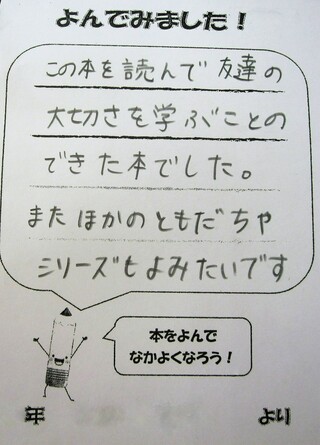 よんでみました！
この本を読んで友達の
大切さを学ぶことの
できた本でした。
またほかのともだちや
シリーズもよみたいです
本をよんで
なかよくなろう！
年 より